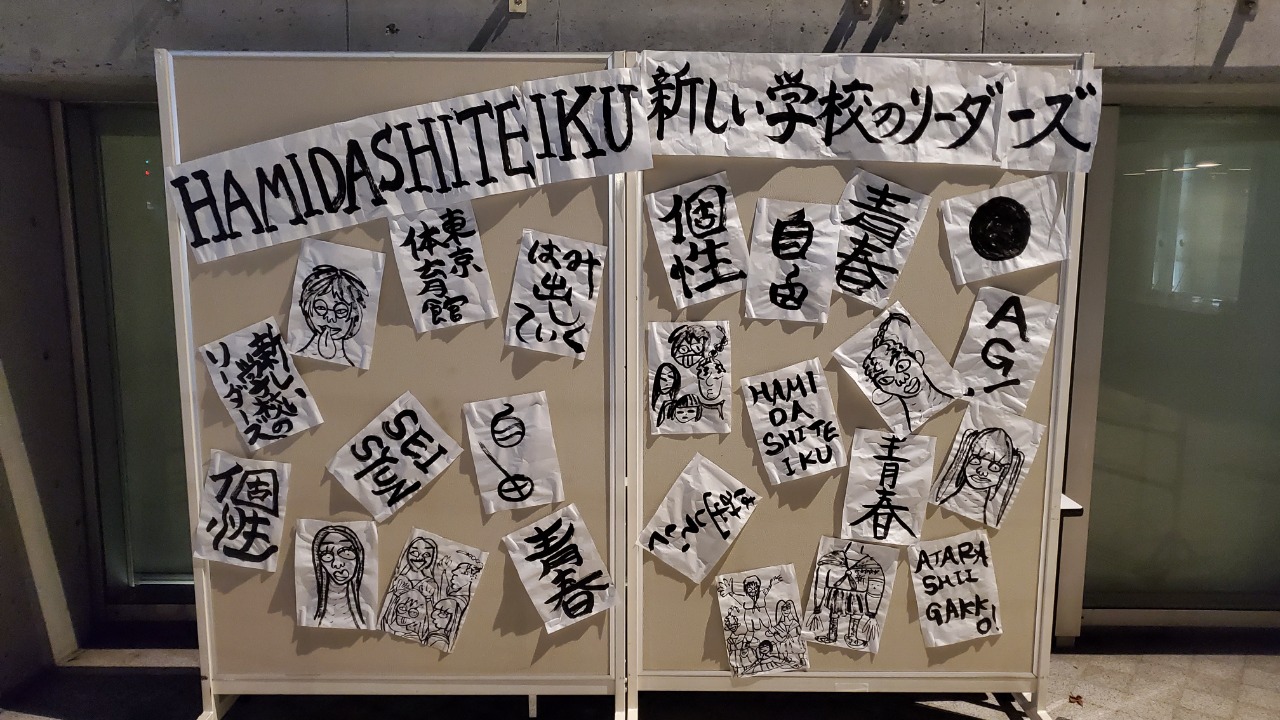 HAMIDASHITEIKU
新しい学校のリーダーズ
東京
体育館
はみ
出しく
てい
新しい
学校の
リーダーズ
SEI
SYUN
個性
青春
個性
自由
青春
AG!
HAMI
DA
SHITE
IKU
青春
はみ出していく
ATARA
SHII
GAKK
O!